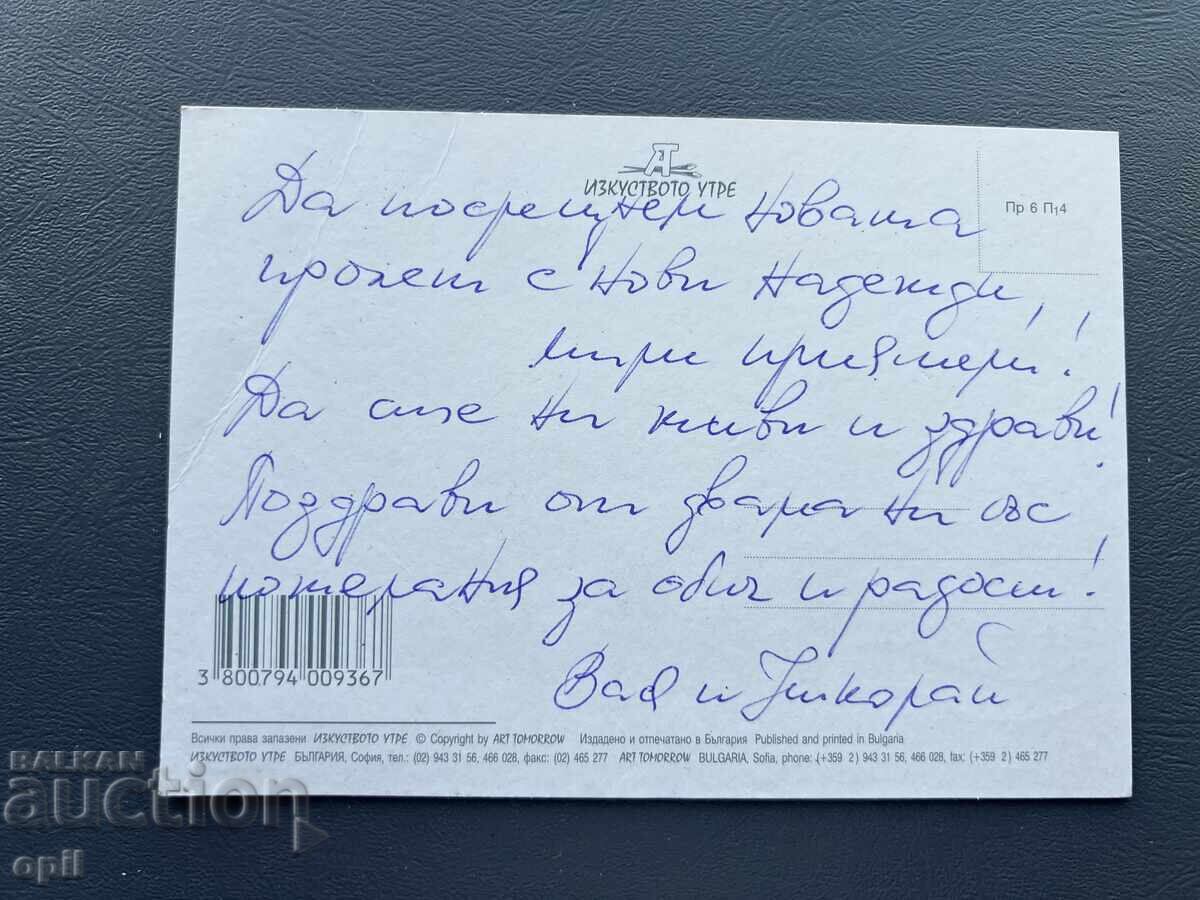 ИЗКУСТВОТО УТРЕ
Пр 6 П14
Да посрещнем новата
пролет с нови надежди,
мили приятели!
Да сте ни живи и здрави!
Поздрави от двама ни със
пожелания за обич и радост!
Вая и Николай
3 800794 009367
Всички права запазени ИЗКУСТВОТО УТРЕ © Copyright by ART TOMORROW Издадено и отпечатано в България Published and printed in Bulgaria
ИЗКУСТВОТО УТРЕ БЪЛГАРИЯ, София, тел.: (02) 943 31 56, 466 028, факс: (02) 465 277 ART TOMORROW BULGARIA, Sofia, phone: (+359 2) 943 31 56, 466 028, fax: (+359 2) 465 277
BALKAN
auction
opll